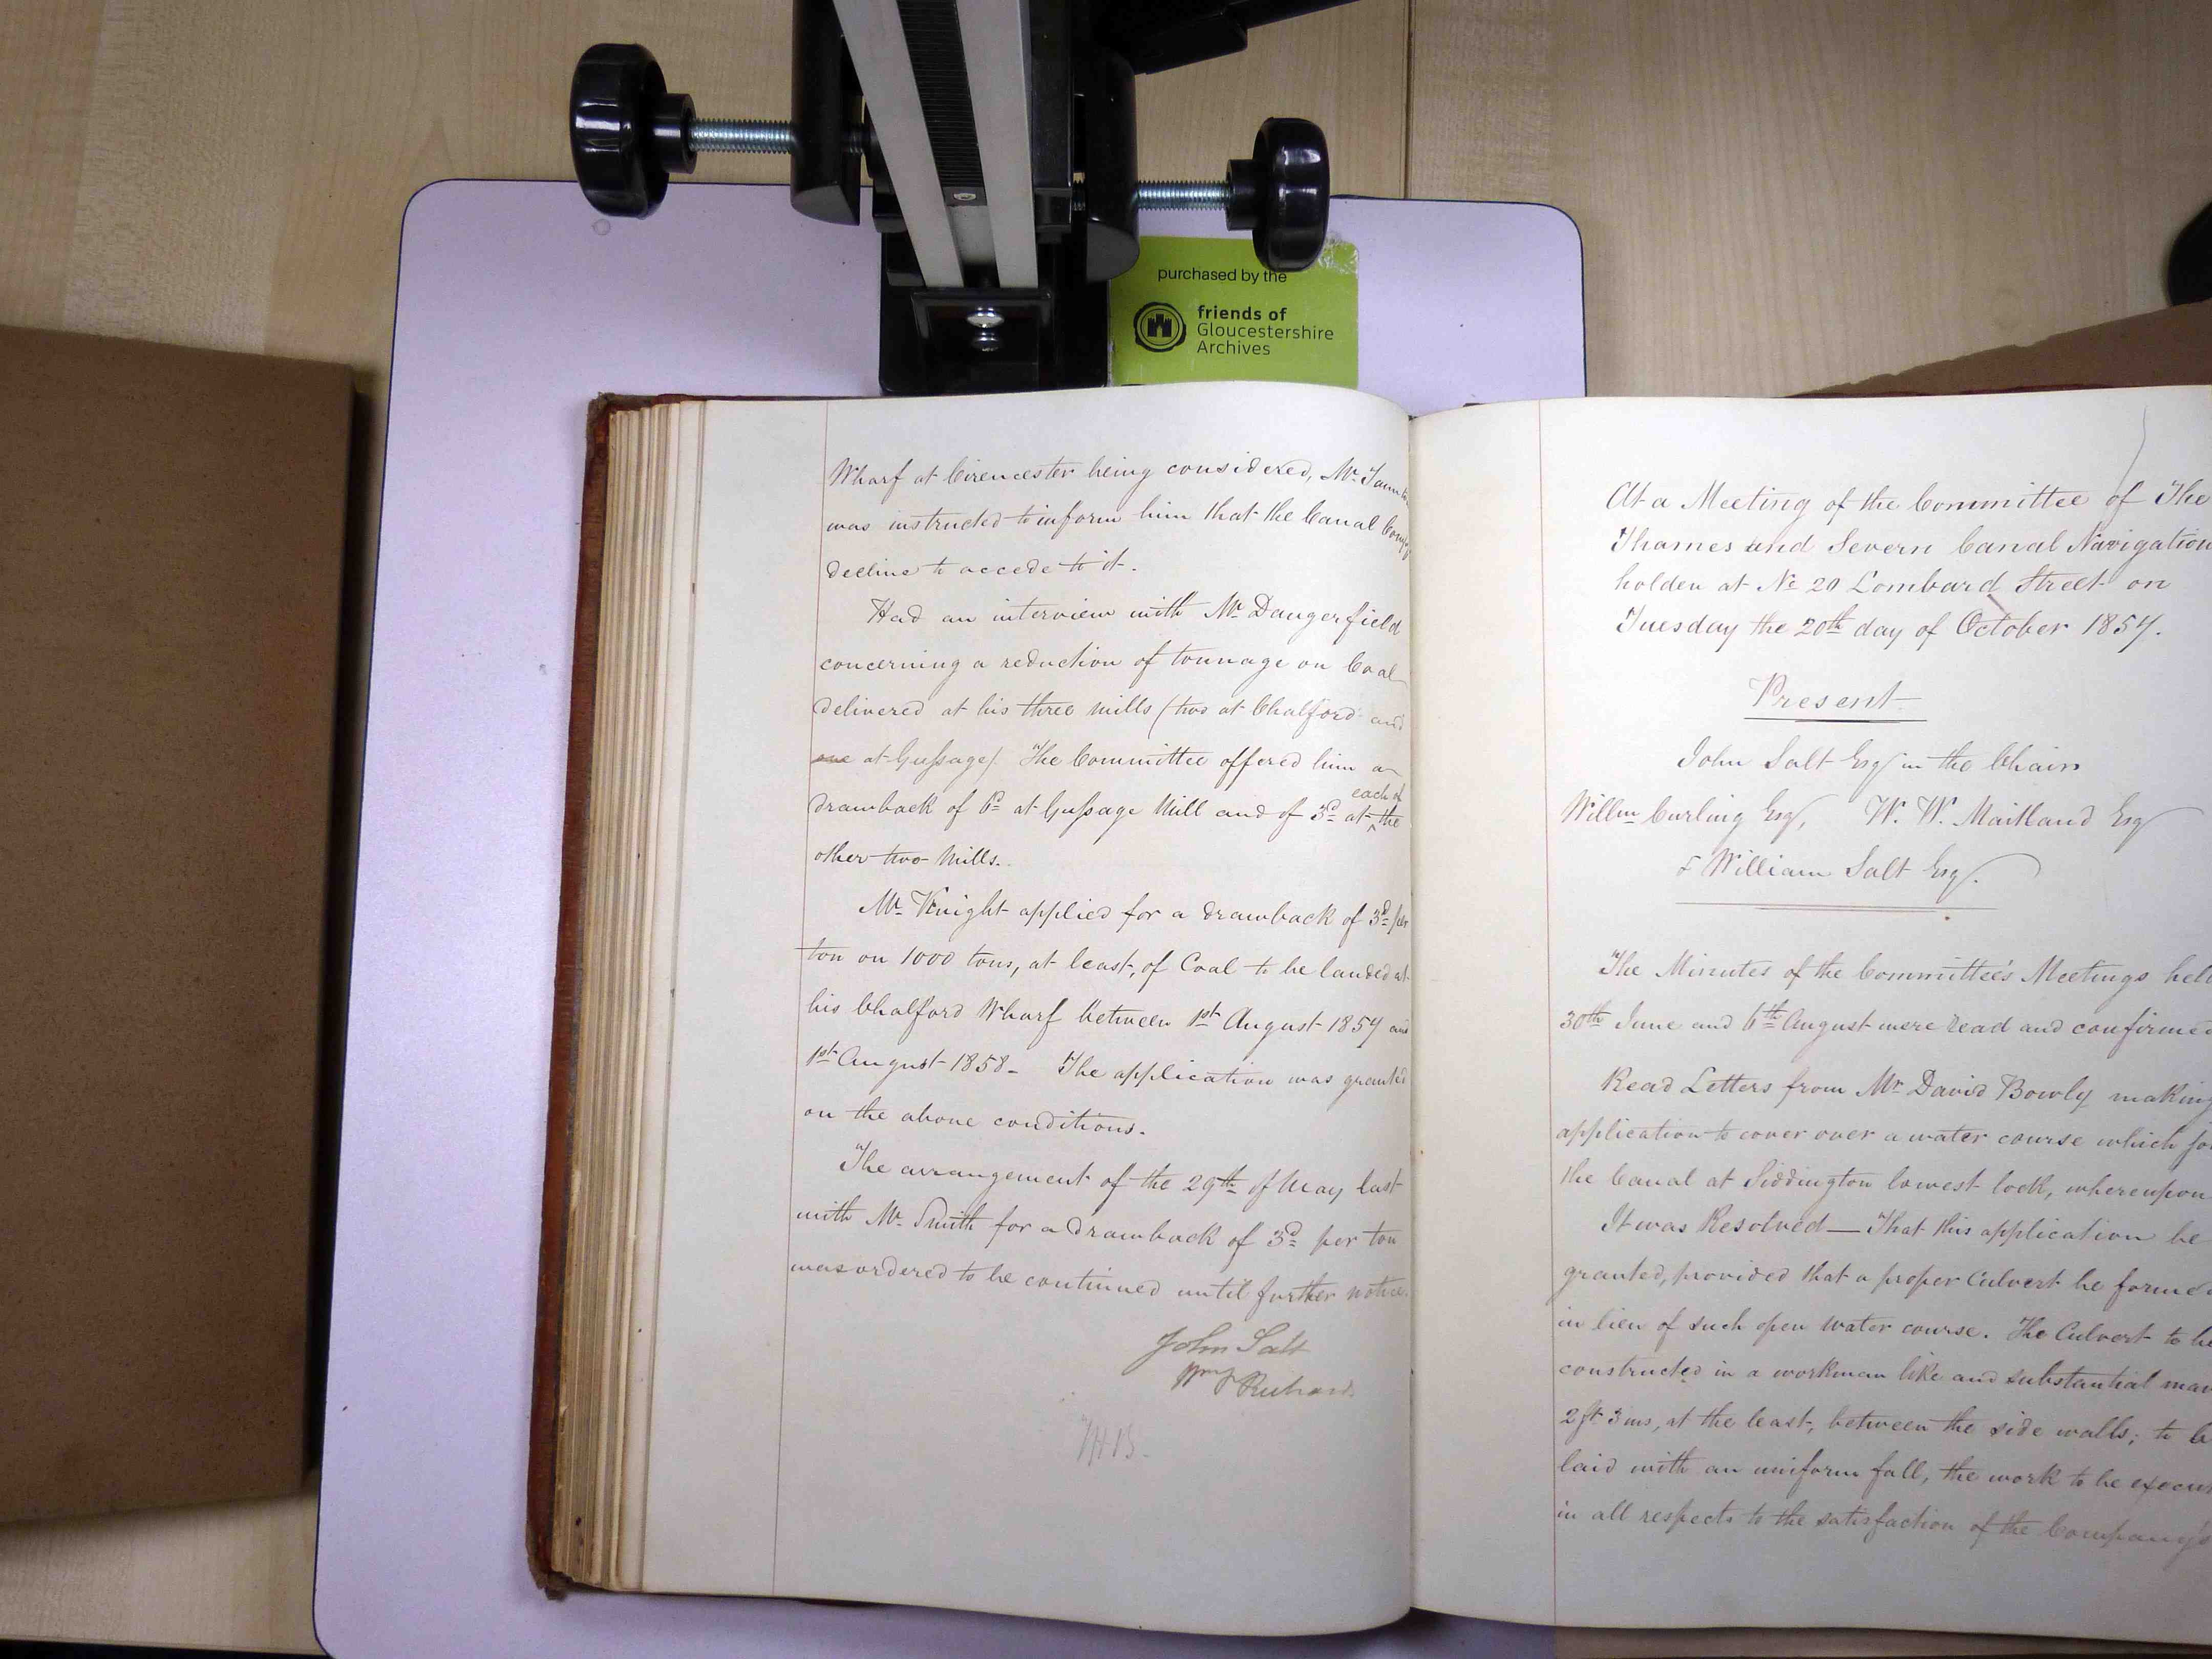 purchased by the
friends of
Gloucestershire
Archives
Wharf at Cirencester being considered, Mr. Taunton
was instructed to inform him that the Canal Compy
decline to accede to it.
Had an interview with Mr Dangerfield
concerning a reduction of tonnage on Coal
delivered at his three mills (two at Chalford and
one at Gussage). The Committee offered him a
drawback of 6d at Gussage Mill and of 3d at each of the
other two Mills.
Mr Knight applied for a drawback of 3d per
ton on 1000 tons, at least, of Coal to be landed at
his Chalford Wharf between 1st August 1857 and
1st August 1858 - The application was granted
on the above conditions.
The arrangement of the 29th of May last
with Mr. Smith for a drawback of 3d per ton
was ordered to be continued until further notice.
John Salt
Wm
At a Meeting of the Committee of The
Thames and Severn Canal Navigation
holden at No 20 Lombard Street on
Tuesday the 20th day of October 1857.
Present
John Salt Esq in the Chair
Willm Curling Esq, W. W. Maitland Esq
& William Salt Esq.
The Minutes of the Committee's Meetings held
30th June and 6th August were read and confirmed
Read Letters from Mr David Bowly making
application to cover over a water course which
the Canal at Siddington lowest lock, whereupon
It was Resolved — That this application be
granted, provided that a proper Culvert be formed
in lieu of such open water course. The Culvert to be
constructed in a workman like and substantial
2ft 3ins, at the least, between the side walls; to
laid with an uniform fall, the work to be
in all respects to the satisfaction of the Company's